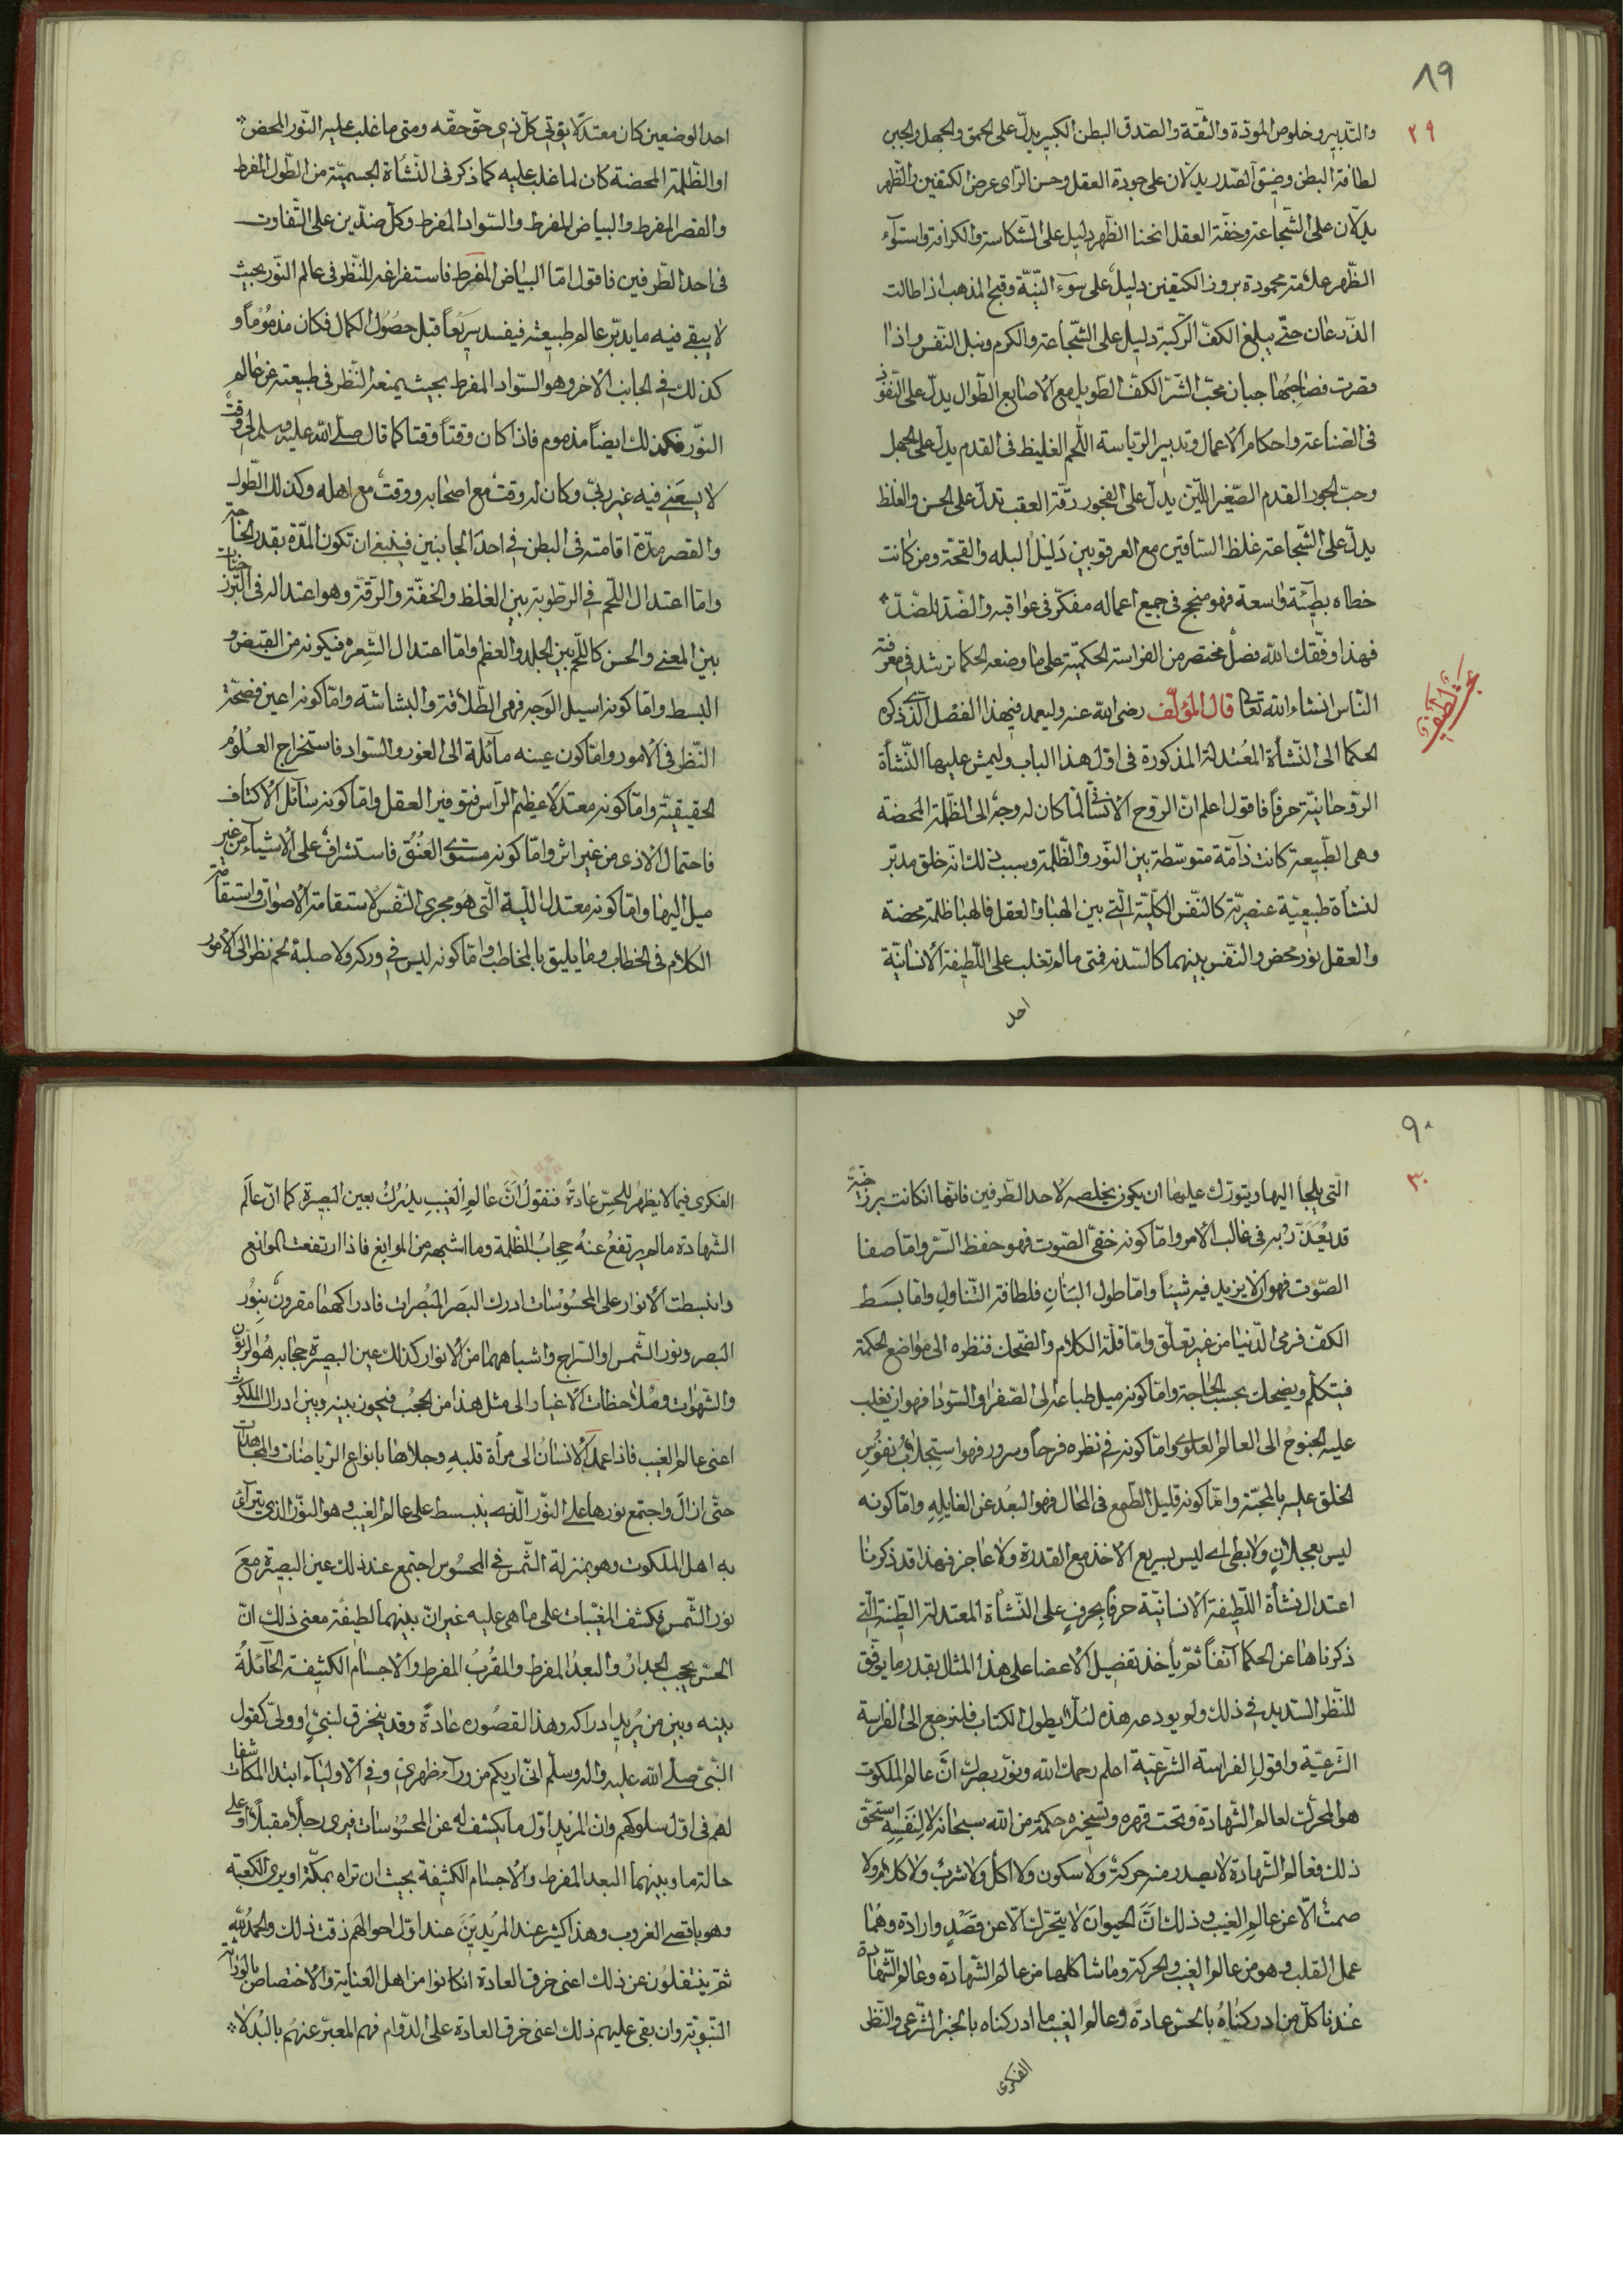 ٨٩
٢٩
والتّدبير وخلوص المودّة والثقّة والصّدق البطن الكبير يدلّ على الحمق والجهل والجبن
لطافة البطن وضيق الصّدر يدلّان على جودة العقل وحسن الرّاى عرض الكتفين والظّهر
يدلّان على الشّجاعة وخفّة العقل انحنا الظّهر دليل على الشّكاسة والكزافة واستوآء
الظّهر علامة محمودة بروز الكتفين دليل على سوء النيّة وقبح المذهب اذا طالت
الذّرعان حتّى يبلغ الكفّ الرّكبة دليل على الشّجاعة والكرم ونبل النّفس واذا
قصرت فصاحبها جبان محبّ الشّرّ الكفّ الطّويل مع الاصابع الطّوال يدلّ على النّفوذ
فى الصّناعة واحكام الاعمال وتدبير الرّياسة اللّحم الغليظ فى القدم يدلّ على الجهل
وحبّ الجور القدم الصّغير اللّيّن يدلّ على الفجور رقّة العقب تدلّ على الحسن والغلظ
يدلّ على الشّجاعة غلظ السّاقين مع العرقوبين دليل البله والقحة ومن كانت
خطاه بطيئة واسعة فهو منجح فى جميع اعماله مفكّر فى عواقبه والضّدّ للضّدّ
فهذا وفّقك الله فصل مختصر من الفراسة الحكميّة على ما وضعه الحكما ترشد فى معرفة
النّاس انشاء الله تعالى قال المؤلّف رضى الله عنه وليعمد فيهذا الفصل الّذى ذكره
الحكما الى النّشأة المعتدلة المذكورة فى اوّل هذا الباب وليمش عليها النّشأة
الرّوحانيّة حرفا فاقول اعلم انّ الرّوح الانسانى لمّا كان له وجه الى الظّلمة المحضة
وهى الطّبيعة كانت ذاته متوسّطة بين النّور والظّلمة وسبب ذلك انّه خلق مدبّر
لنشأة طبيعيّة عنصريّة كالنّفس الكلّيّة الّتى بين الهبا والعقل فالهبا ظلمة محضة
والعقل نور محض والنّفس بينهما كالسّدنة فمتى ما لم تغلب على اللّطيفة الانسانيّة
احد
احد الوضعين كان معتدلا يؤتى كلّ ذى حقّ حقّه ومتى ما غلب عليه النّور المحض
او الظّلمة المحضة كان لما غلب عليه كما ذكر فى النّشأة الجسميّة من الطّول المفرط
والقصر المفرط والبياض المفرط والسّواد المفرط وكلّ ضدّين على التّفاوت
فى احد الطّرفين فاقول امّا البياض المفرط فاستفراغه للنّظر فى عالم النّور بحيث
لا يبقى فيه ما يدبّر عالم طبيعته فيفسد سريعا قبل حصول الكمال فكان مذموما و
كذلك فى الجانب الاخر وهو السّواد المفرط بحيث يمنعه النّظر فى طبيعته عن عالم
النّور فكذلك ايضا مذموم فاذا كان وقتا وقتا كما قال صلّى الله عليه وسلم لى وقت
لا يسعنى فيه غير ربّى وكان له وقت مع اصحابه ووقت مع اهله وكذلك الطّول
والقصر مدّة اقامته فى البطن فى احد الجانبين فينبغى ان تكون المدّة بقدر الحاجة
وامّا اعتدال اللّحم فى الرّطوبة بين الغلظ والخفّة والرّقّة وهو اعتداله فى البرزخيّات
بين المعنى والحسن كاللّحم بين الجلد والعظم وامّا اعتدال الشّعره فيكونه من القبض و
البسط وامّا كونه اسيل الوجه فهى الطّلاقة والبشاشة وامّا كونه اعين فصحّة
النّظر فى الامور وامّا كون عينه مآئلة الى الغور والسّواد فاستخراج العلوم
الحقيقيّة وامّا كونه معتدلا عظيم الرّاس فتوفير العقل وامّا كونه سآئل الاكتاف
فاحتمال الاذى من غير اثر وامّا كونه مستوى العنق فاستشراف على الاشيآء من غير
ميل اليها وامّا كونه معتدل اللّبة الّتى هو مجرى النّفس لاستقامة الاصوات واستقامة
الكلام فى الخطاب وما يليق بالمخاطب وامّا كونه ليس فى وركه ولا صلبه لحم نظر الى الامور
٩٠
٣٠
الّتى يلجأ اليها ويتورّك عليها ان يكون يخلصه لاحد الطّرفين فانّها ان كانت برزخيّة
قد يعدّ ربه فى غالب الامر وامّا كونه خفىّ الصّوت فهو حفظ السّرّ وامّا صفا
الصّوت فهو ان لا يزيد فيه شيئا وامّا طول البنان فلطافة التّناول وامّا بسط
الكفّ فرمى الدّنيا من غير تعلّق وامّا قلّة الكلام والضّحك فنظره الى مواضع الحكمة
فيتكلّم ويضحك بحسب الحاجة وامّا كونه ميل طباعه الى الصّفرا والسّودا فهو ان يغلب
عليه الجنوح الى العالم العلوى وامّا كونه فى نظره فرحا وسرور فهو استجلاب نفوس
الخلق عليه بالمحبّة وامّا كونه قليل الطّمع فى المال فهو البعد عن الغايله وامّا كونه
ليس بعجلان ولا بطى اى ليس بسريع الاخذ مع القدرة ولا عاجز فهذا قد ذكرنا
اعتدال نشأة اللّطيفة الانسانيّة حرفا بحرف على النّشأة المعتدلة الطّينة الّتى
ذكرناها عن الحكما آنفا ثمّ يأخذ تفصيل الاعضا على هذا المثال بقدر ما يوفّق
للنّظر السّديد فى ذلك ولم يودعه هذه لئلّا يطول الكتاب فلنرجع الى الفراسة
الشّرعيّة واقول الفراسة الشّرعيّة اعلم رحمك الله ونوّر بصرك انّ عالم الملكوت
هو المحرّك لعالم الشّهادة وتحت قهره وتسخيره حكمة من الله سبحانه لا لنفسه استحقّ
ذلك فعالم الشّهادة لا يصدر منه حركة ولا سكون ولا اكل ولا شرب ولا كلام ولا
صمت الّا عن عالم الغيب وذلك انّ الحيوان لا يتحرّك الّا عن قصد وارادة وهما
عمل القلب وهو من عالم الغيب والحركة وما شاكلها من عالم الشّهادة وعالم الشّهادة
عندنا كلّ من ادركناه بالحسّ عادة وعالم الغيب ما ادركناه بالخبر الشّرعى والنّظر
الفكرى
الفكرى فيما لا يظهر للحسّ عادة فنقول انّ عالم الغيب يدرك بعين البصيرة كما انّ عالم
الشّهادة ما لم يرتفع عنه حجاب الظّلمة وما اشبهه من الموانع فاذا ارتفعت الموانع
وانبسطت الانوار على المحسوسات ادرك البصر المبصرات فادراكهما مقرون بنور
البصر ونور الشّمس او السّراج واشباههما من الانوار كذلك عين البصيرة حجابه هو الرّيون
والشّهوات وملاحظات الاغيار الى مثل هذا من الحجب فيحول بينه وبين ادراك الملكوت
اعنى عالم الغيب فاذا عمد الانسان الى مرأة قلبه وجلاها بانواع الرّياضات والمجاهدات
حتّى ازال واجتمع نورها على النّور الّذى ينبسط على عالم الغيب وهو النّور الذى يترآئى
به اهل الملكوت وهو بمنزلة الشّمس فى المحسوس اجتمع عند ذلك عين البصيرة مع
نور الشّمس فكشف المغيّبات على ما هى عليه غير انّ بينهما لطيفة معنى ذلك انّ
الحسّ يحجبه الجدار والبعد المفرط والقرب المفرط والاجسام الكثيفة الحآئلة
بينه وبين من يريد ادراكه وهذا القصوره عادة وقد ينخرق لنبىّ او ولىّ كقول
النّبىّ صلّى الله عليه واله وسلّم انّى اريكم من ورآء ظهرى وفى الاوليآء ابتدا المكاشفات
لهم فى اوّل سلوكهم وانّ المريد اوّل ما يكشف له عن المحسوسات فيرى رجلا مقبلا او على
حالة ما وبينهما البعد المفرط والاجسام الكثيفة بحيث ان تراه بمكّة او يرى الكعبة
وهو باقصى الغروب وهذا كثير عند المريدين عند اوّل احوالهم ذقت ذلك والحمد لله
ثمّ ينتقلون عن ذلك اعنى خرق العادة ان كانوا من اهل العناية والاختصاص بالوراثة
النّبويّة وان بقى عليهم ذلك اعنى خرق العادة على الدّوام فهم المعبّر عنهم بالبدلا